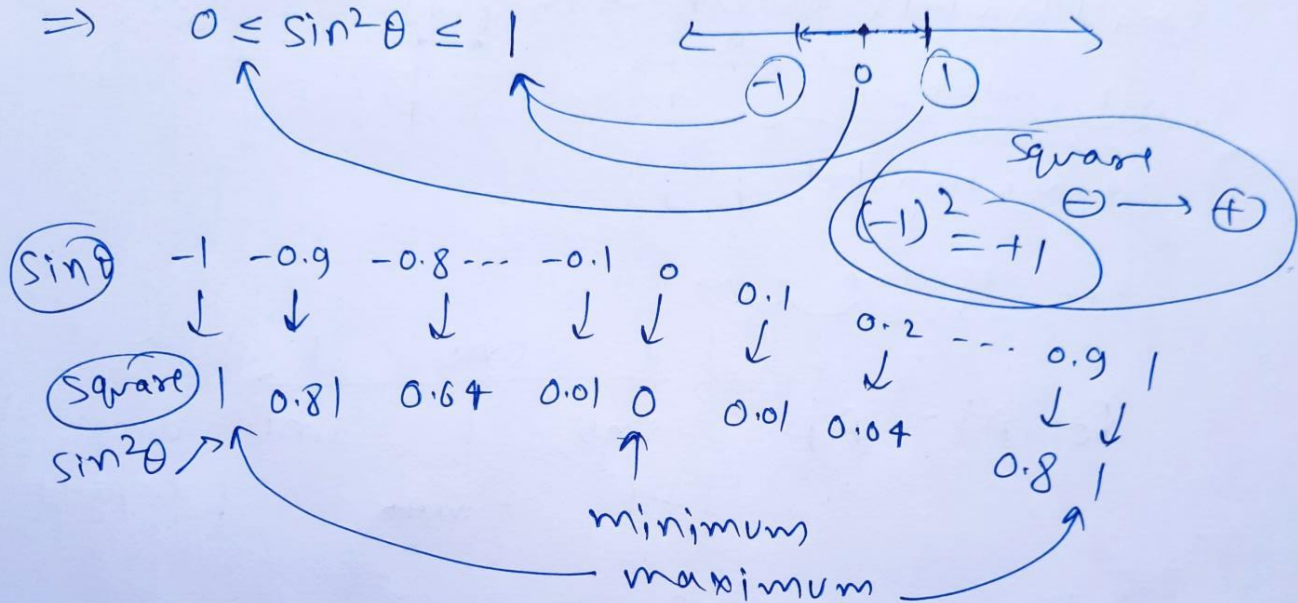 ⇒ 0 ≤ sin²θ ≤ 1
-1 0 1
Square
⊖ → ⊕
(-1)² = +1
sinθ -1 -0.9 -0.8 --- -0.1 0 0.1 0.2 --- 0.9 1
↓ ↓ ↓ ↓ ↓ ↓ ↓ ↓ ↓
Square 1 0.81 0.64 0.01 0 0.01 0.04 0.8 1
sin²θ
minimum
maximum